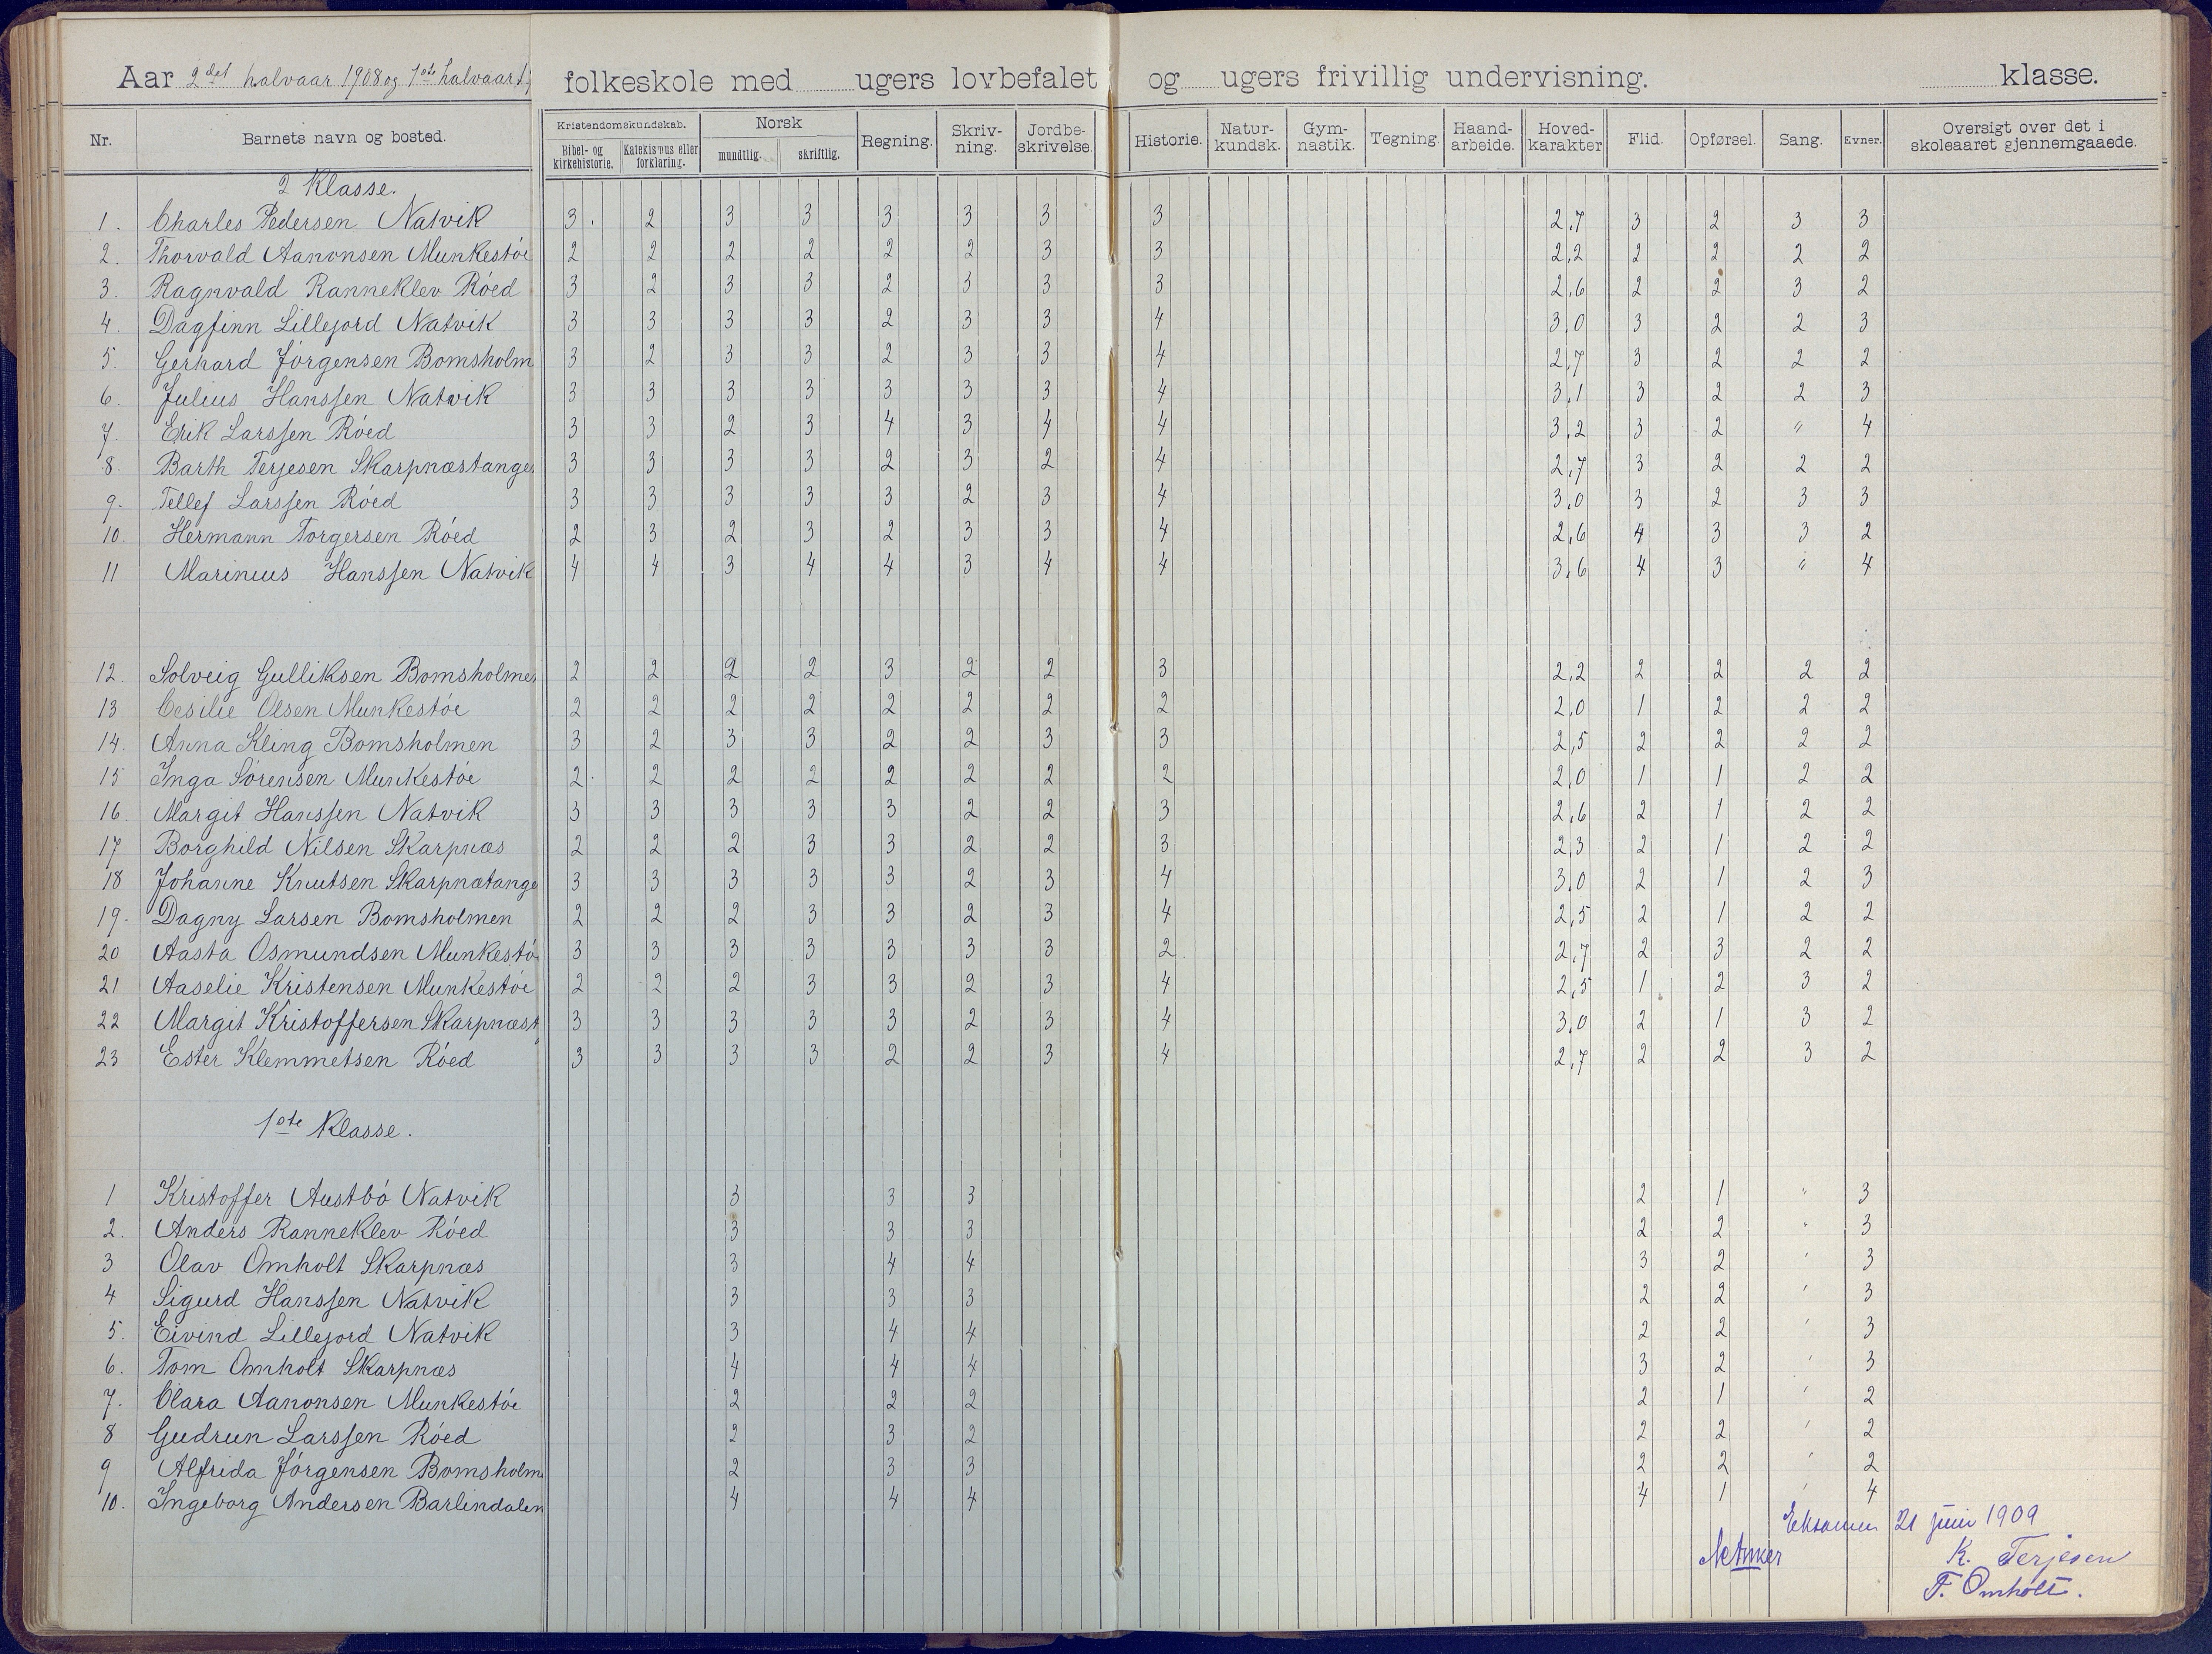 Aar 2det halvaar 1908 og 1ste halvaar folkeskole med ugers lovbefalet og ugers frivillig undervisning. klasse.
Nr. Barnets navn og bosted. Kristendomskundskab. Bibel- og kirkehistorie. Katekismus eller forklaring. Norsk mundtlig. skriftlig. Regning. Skriv-ning. Jordbe-skrivelse. Historie. Natur-kundsk. Gym-nastik. Tegning. Haand-arbeide. Hoved-karakter Flid. Opførsel. Sang. Evner. Oversigt over det i skoleaaret gjennemgaaede.
2 Klasse.
1. Charles Pedersen Natvik 3. 2 3 3 3 3 3 3 2,7 3 2 3 3
2. Thorvald Aanonsen Munkestöe 2 2 2 2 2 2 3 3 2,2 2 2 2 2
3. Ragnvald Ranneklev Röed 3 2 3 3 2 3 3 3 2,6 2 2 3 2
4. Dagfinn Lillejord Natvik 3 3 3 3 2 3 3 4 3,0 3 2 2 3
5. Gerhard Jörgensen Bomsholm 3 2 3 3 2 3 3 4 2,7 3 2 2 2
6. Julius Hanssen Natvik 3 3 3 3 3 3 3 4 3,1 3 2 2 3
7. Erik Larssen Röed 3 3 2 3 4 3 4 4 3,2 3 2 " 4
8. Barth Terjesen Skarpnæstangen 3 3 3 3 2 3 2 4 2,7 3 2 2 2
9. Tellef Larssen Röed 3 3 3 3 3 2 3 4 3,0 3 2 3 3
10. Hermann Torgersen Röed 2 3 2 3 2 3 3 4 2,6 4 3 3 2
11 Marinius Hanssen Natvik 4 4 3 4 4 3 4 4 3,6 4 3 " 4
12. Solveig Gulliksen Bomsholmen 2 2 2 2 3 2 2 3 2,2 2 2 2 2
13 Cesilie Olsen Munkestöe 2 2 2 2 2 2 2 2 2,0 1 2 2 2
14. Anna Kling Bomsholmen 3 2 3 3 2 2 3 3 2,5 2 2 2 2
15 Inga Sörensen Munkestöe 2. 2 2 2 2 2 2 2 2,0 1 1 2 2
16. Margit Hanssen Natvik 3 3 3 3 3 2 2 3 2,6 2 1 2 2
17 Borghild Nilsen Skarpnæs 2 2 2 3 3 2 2 3 2,3 2 1 2 2
18 Johanne Knutsen Skarpnætange 3 3 3 3 3 2 3 4 3,0 2 1 2 3
19. Dagny Larsen Bomsholmen 2 2 2 3 3 2 3 4 2,5 2 1 2 2
20 Aasta Osmundsen Munkestö 3 3 3 3 3 3 3 2 2,7 2 3 2 2
21 Aaselie Kristensen Munkestöe 2 2 2 3 3 2 3 4 2,5 1 2 3 2
22 Margit Kristoffersen Skarpnæst 3 3 3 3 3 2 3 4 3,0 2 1 3 2
23 Ester Klemmetsen Röed 3 3 3 3 2 2 3 4 2,7 2 2 3 2
1ste Klasse.
1 Kristoffer Austbö Natvik 3 3 3 2 1 " 3
2. Anders Ranneklev Röed 3 3 3 2 2 " 3
3 Olav Omholt Skarpnæs 3 4 4 3 2 ' 3
4 Sigurd Hanssen Natvik 3 3 3 2 2 ' 3
5. Eivind Lillejord Natvik 3 4 4 2 2 ' 3
6. Tom Omholt Skarpnæs 4 4 4 3 2 ' 3
7. Clara Aanonsen Munkestöe 2 2 2 2 1 ' 2
8 Gudrun Larssen Röed 2 3 2 2 2 ' 2
9 Alfrida Jörgensen Bomsholm 2 3 3 2 2 ' 2
10. Ingeborg Andersen Barlindalen 4 4 4 4 1 ' 4
Eksamen 21 juni 1909
K. Terjesen
T. Omholt.